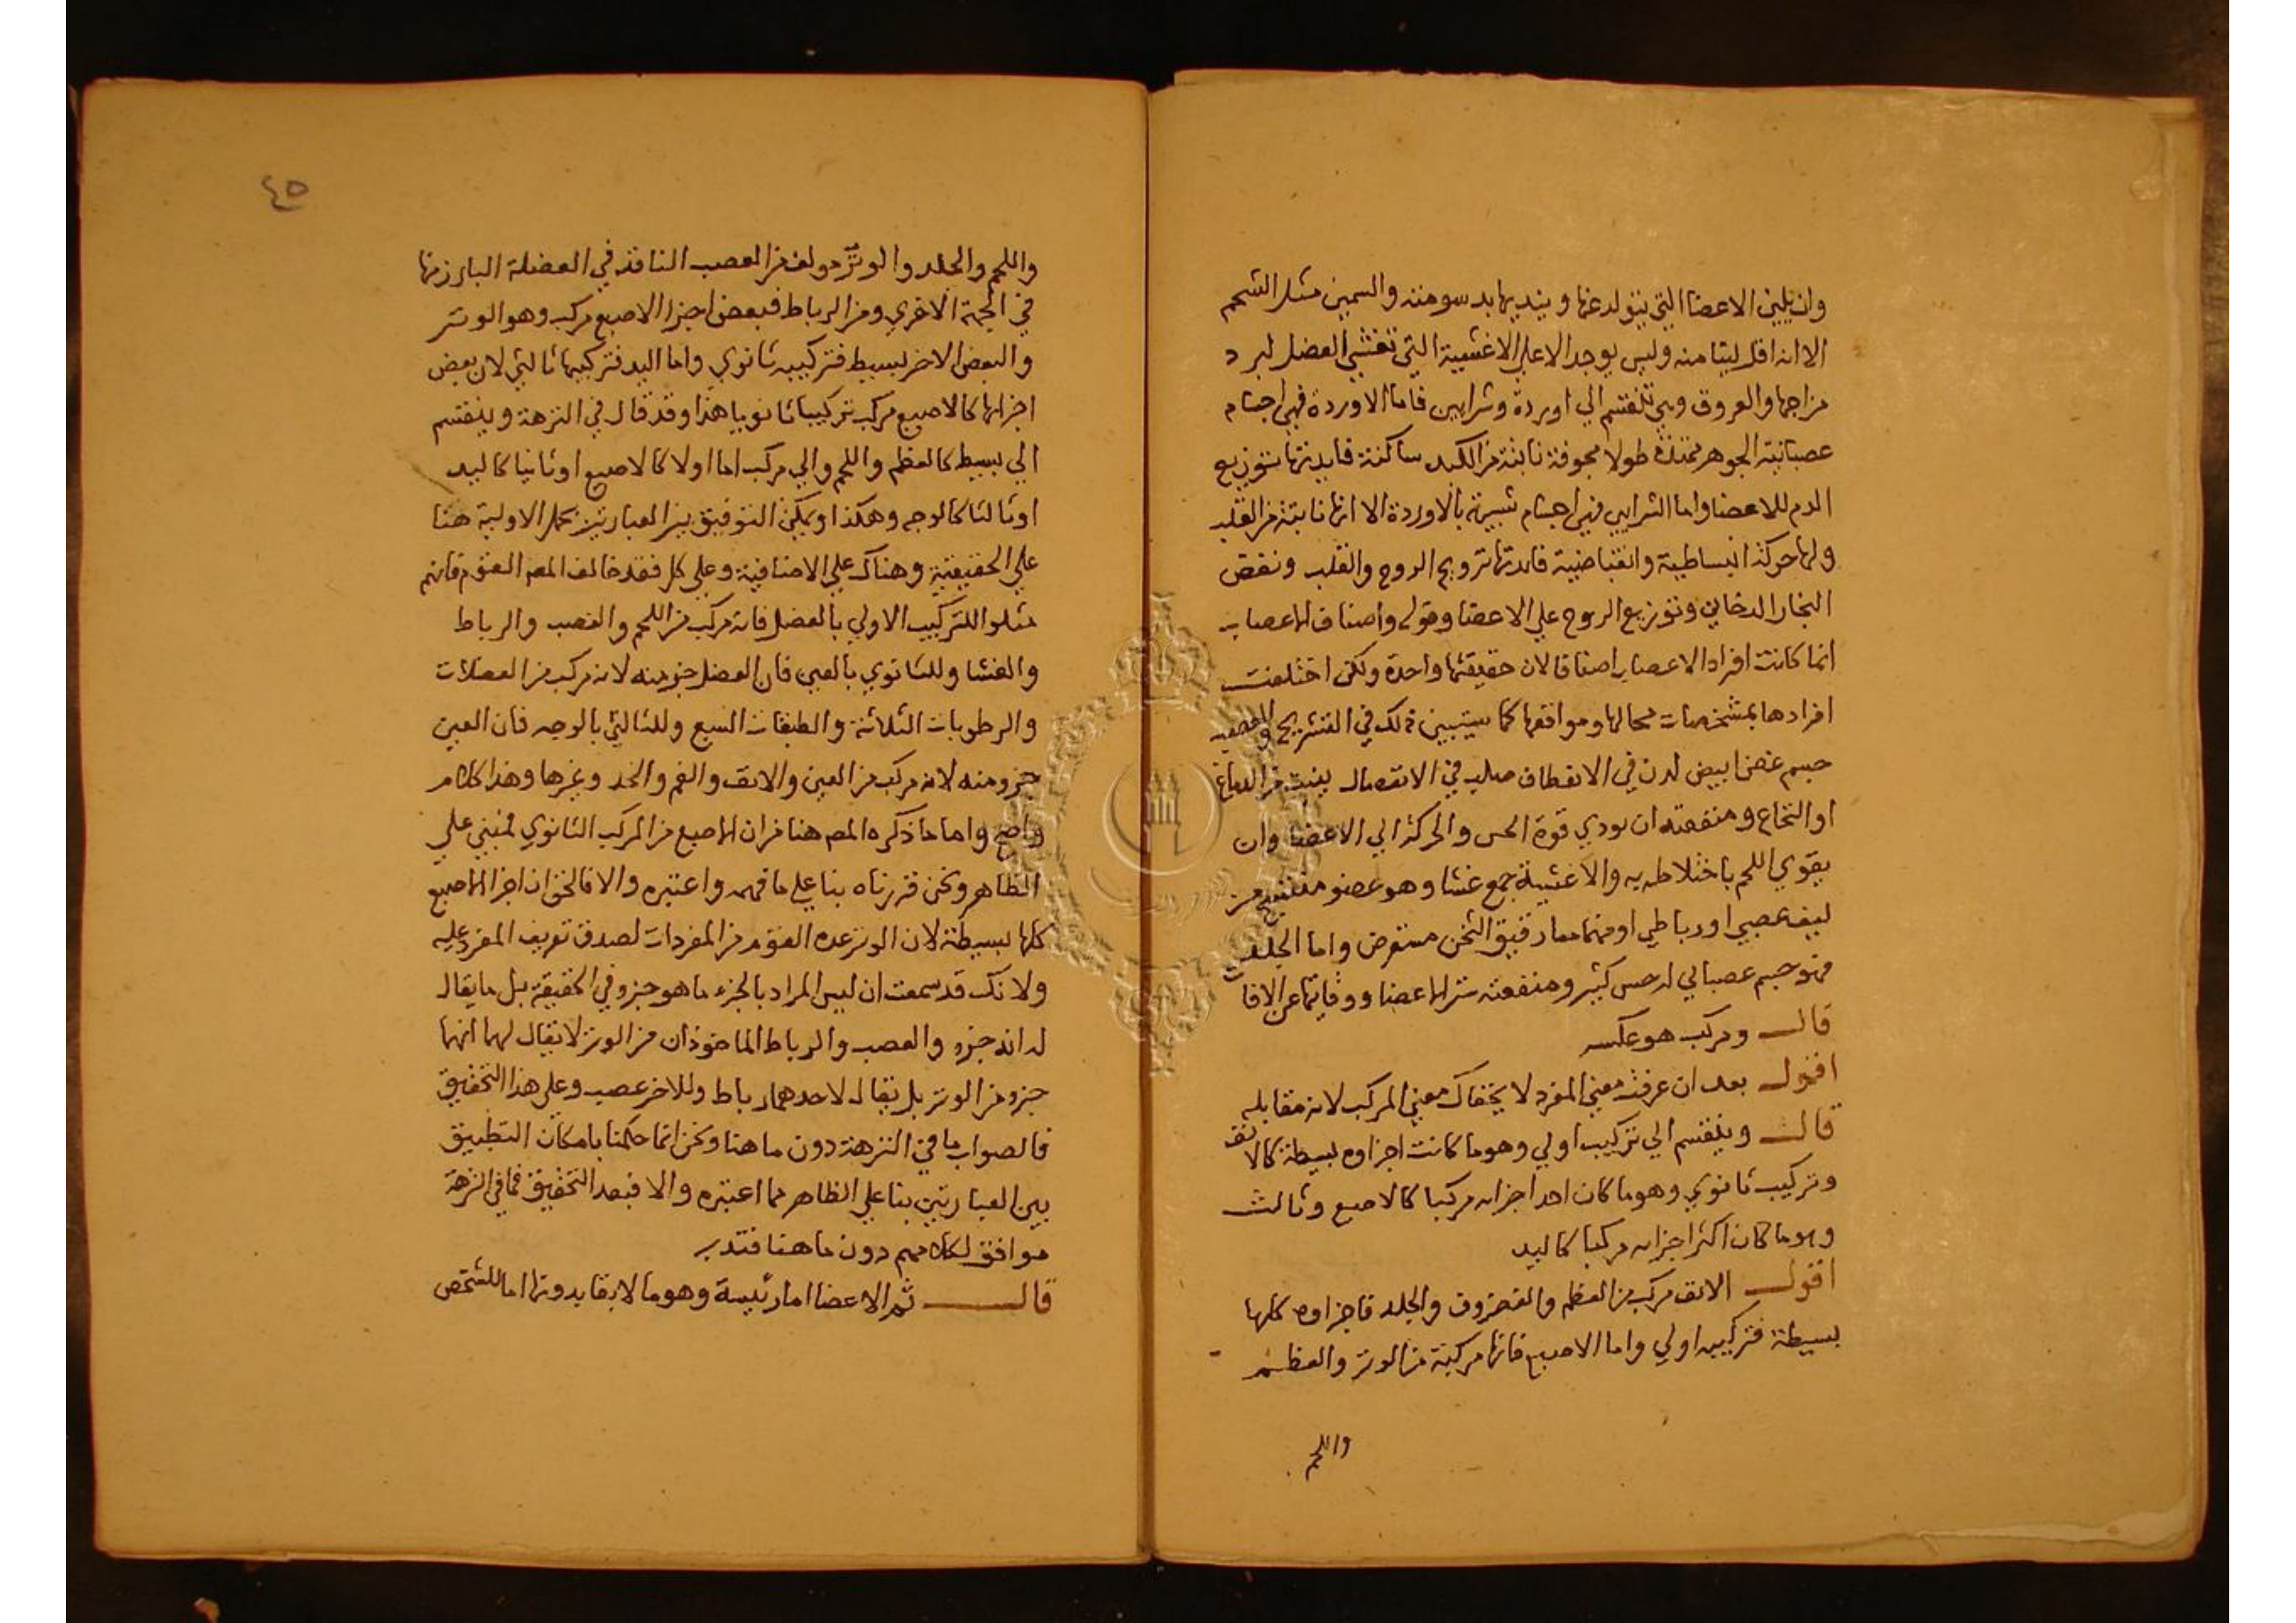 وان يلين الاعضا التي يتولد عنها ويند يها بدسومته والسمين مثل الشحم
الا انه اقل لينا منه وليس يوجد الا علي الاغشية التي تغشي العضل لبرد
مزاجها والعروق وهي تنقسم الي اوردة وشرايين فاما الاوردة فهي اجسام
عصبانية الجوهر ممتدة طولا مجوفة نابتة من الكبد ساكنة فايدتها توزيع
الدم للاعضا واما الشرايين فهي اجسام شبيهة بالاوردة الا انها نابتة من القلب
ولها حركة انبساطية وانقباضية فايدتها ترويح الروح والقلب ونفض
البخار الدخاني وتوزيع الروح علي الاعضا وقوله واصناف الاعصاب
انما كانت افراد الاعصاب اصنافا لان حقيقتها واحدة ولكن اختلفت
افرادها بمشخصات محالها ومواقعها كما سيتبين ذلك في التشريح والعصب
جسم غض ابيض لدن في الانعطاف صلب في الانفصال ينبت من الدماغ
او النخاع ومنفعته ان يودي قوة الحس والحركة الي الاعضا وان
يقوي اللحم باختلاطه به والاغشية جمع غشا وهو عضو منتسج من
ليف عصبي او رباطي او منهما معا رقيق الثخن مستعرض واما الجلد
فهو جسم عصباني له حس كثير ومنفعته ستر الاعضا ووقايتها عن الافات
قال ومركب هو عكسه
اقول بعد ان عرفت معني المفرد لا يخفاك معني المركب لانه مقابله
قال وينقسم الي تركيب اولي وهو ما كانت اجزاوه بسيطة كالانف
وتركيب ثانوي وهو ما كان احد اجزايه مركبا كالاصبع وثالث
وهو ما كان اكثر اجزايه مركبا كاليد
اقول الانف مركب من العظم والغضروف والجلد فاجزاوه كلها
بسيطة فتركيبه اولي واما الاصبع فانها مركبة من الوتر والعظم
واللحم
٤٥
واللحم والجلد والوتر مولف من العصب النافذ في العضلة البارز منها
في الجهة الاخري ومن الرباط فبعض اجزا الاصبع مركب وهو الوتر
والبعض الاخر بسيط فتركيبه ثانوي واما اليد فتركيبها ثالثي لان بعض
اجزايها كالاصبع مركب تركيبا ثانويا هذا وقد قال في النزهة وينقسم
الي بسيط كالعظم واللحم والي مركب اما اولا كالاصبع او ثانيا كاليد
او ثالثا كالوجه وهكذا ويمكن التوفيق بين العبارتين بحمل الاولية هنا
علي الحقيقية وهناك علي الاضافية وعلي كل فقد خالف المصم القوم فانهم
مثلوا للتركيب الاولي بالعضل فانه مركب من اللحم والعصب والرباط
والغشا وللثانوي بالعين فان العضل جزو منه لانه مركب من العضلات
والرطوبات الثلاثة والطبقات السبع وللثالثي بالوجه فان العين
جزو منه لانه مركب من العين والانف والفم والخد وغيرها وهذا كلام
واضح واما ما ذكره المصم هنا من ان الاصبع من المركب الثانوي فمبني علي
الظاهر ونحن قررناه بنا علي ما فهمه واعتبره والا فالحق ان اجزا الاصبع
كلها بسيطة لان الوتر عده القوم من المفردات لصدق تعريف المفرد عليه
ولانك قد سمعت ان ليس المراد بالجزء ما هو جزو في الحقيقة بل ما يقال
له انه جزو والعصب والرباط الماخوذان من الوتر لا يقال لهما انهما
جزو من الوتر بل يقال لاحدهما رباط وللاخر عصب وعلي هذا التحقيق
فالصواب ما في النزهة دون ما هنا ونحن انما حكمنا بامكان التطبيق
بين العبارتين بنا علي الظاهر مما اعتبره والا فبعد التحقيق فما في النزهة
موافق لكلامهم دون ما هنا فتدبر
قال ثم الاعضا اما رئيسة وهو ما لا بقا بدونها اما للشخص